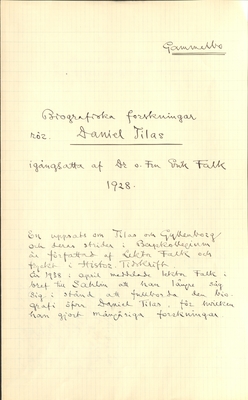 Gammelbo
Biografiska forskningar
rör. Daniel Tilas
igångsatta af Dr o. Fru Erik Falk
1928.
En uppsats om Tilas och Gyllenborg
och deras strider i Bergskollegium
är författad af Lektor Falk och
tryckt i Histor. Tidskrift.
År 1938 i april meddelade lektor Falk i
bref till Sahlin att han längre såg
sig i stånd att fullborda den bio-
grafi öfver Daniel Tilas, för hvilken
han gjort mångåriga forskningar